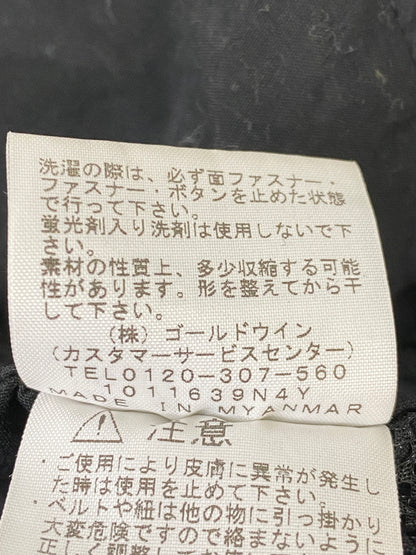 洗濯の際は、必ず面ファスナー・
ファスナー・ボタンを止めた状態
で行って下さい。
蛍光剤入り洗剤は使用しないで下
さい。
素材の性質上、多少収縮する可能
性があります。形を整えてから干
して下さい。
(株) ゴールドウイン
(カスタマーサービスセンター)
TEL0120-307-560
1011639N4Y
MADE IN MYANMAR
注意
・ご使用により皮膚に異常が発生し
た時は使用を止めて下さい。
・ベルトや紐は他の物に引っ掛かり
大変危険ですので絡まないように
正しく調整して